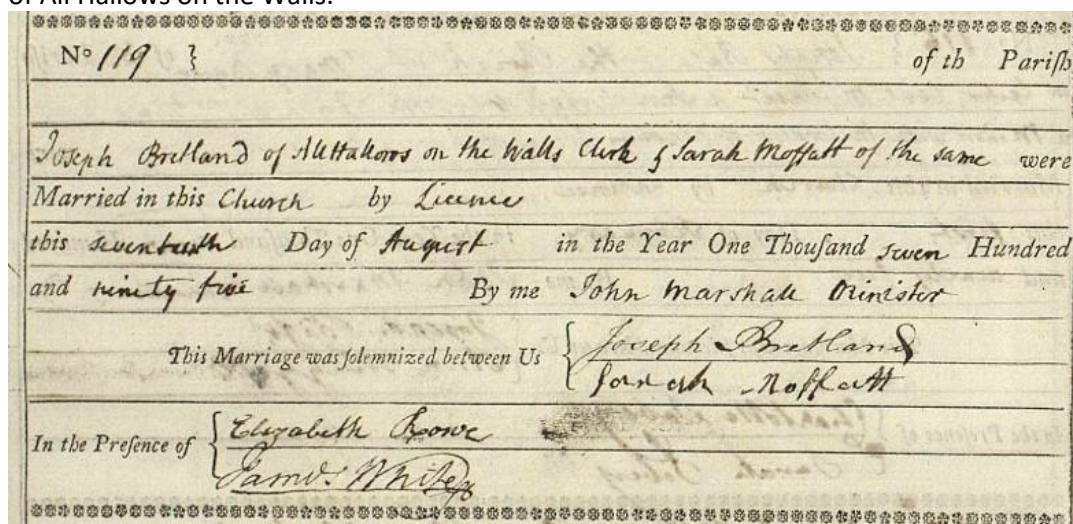 of All Hallows on the Walls.
No 119 } of th Parish
Joseph Bretland of Allhallows on the Walls Clerk & Sarah Moffatt of the same were
Married in this Church by Licence
this seventeenth Day of August in the Year One Thousand seven Hundred
and ninety five By me John Marshall Minister
This Marriage was solemnized between Us { Joseph Bretland
Sarah Moffatt
In the Presence of { Elizabeth Rowe
Jams White